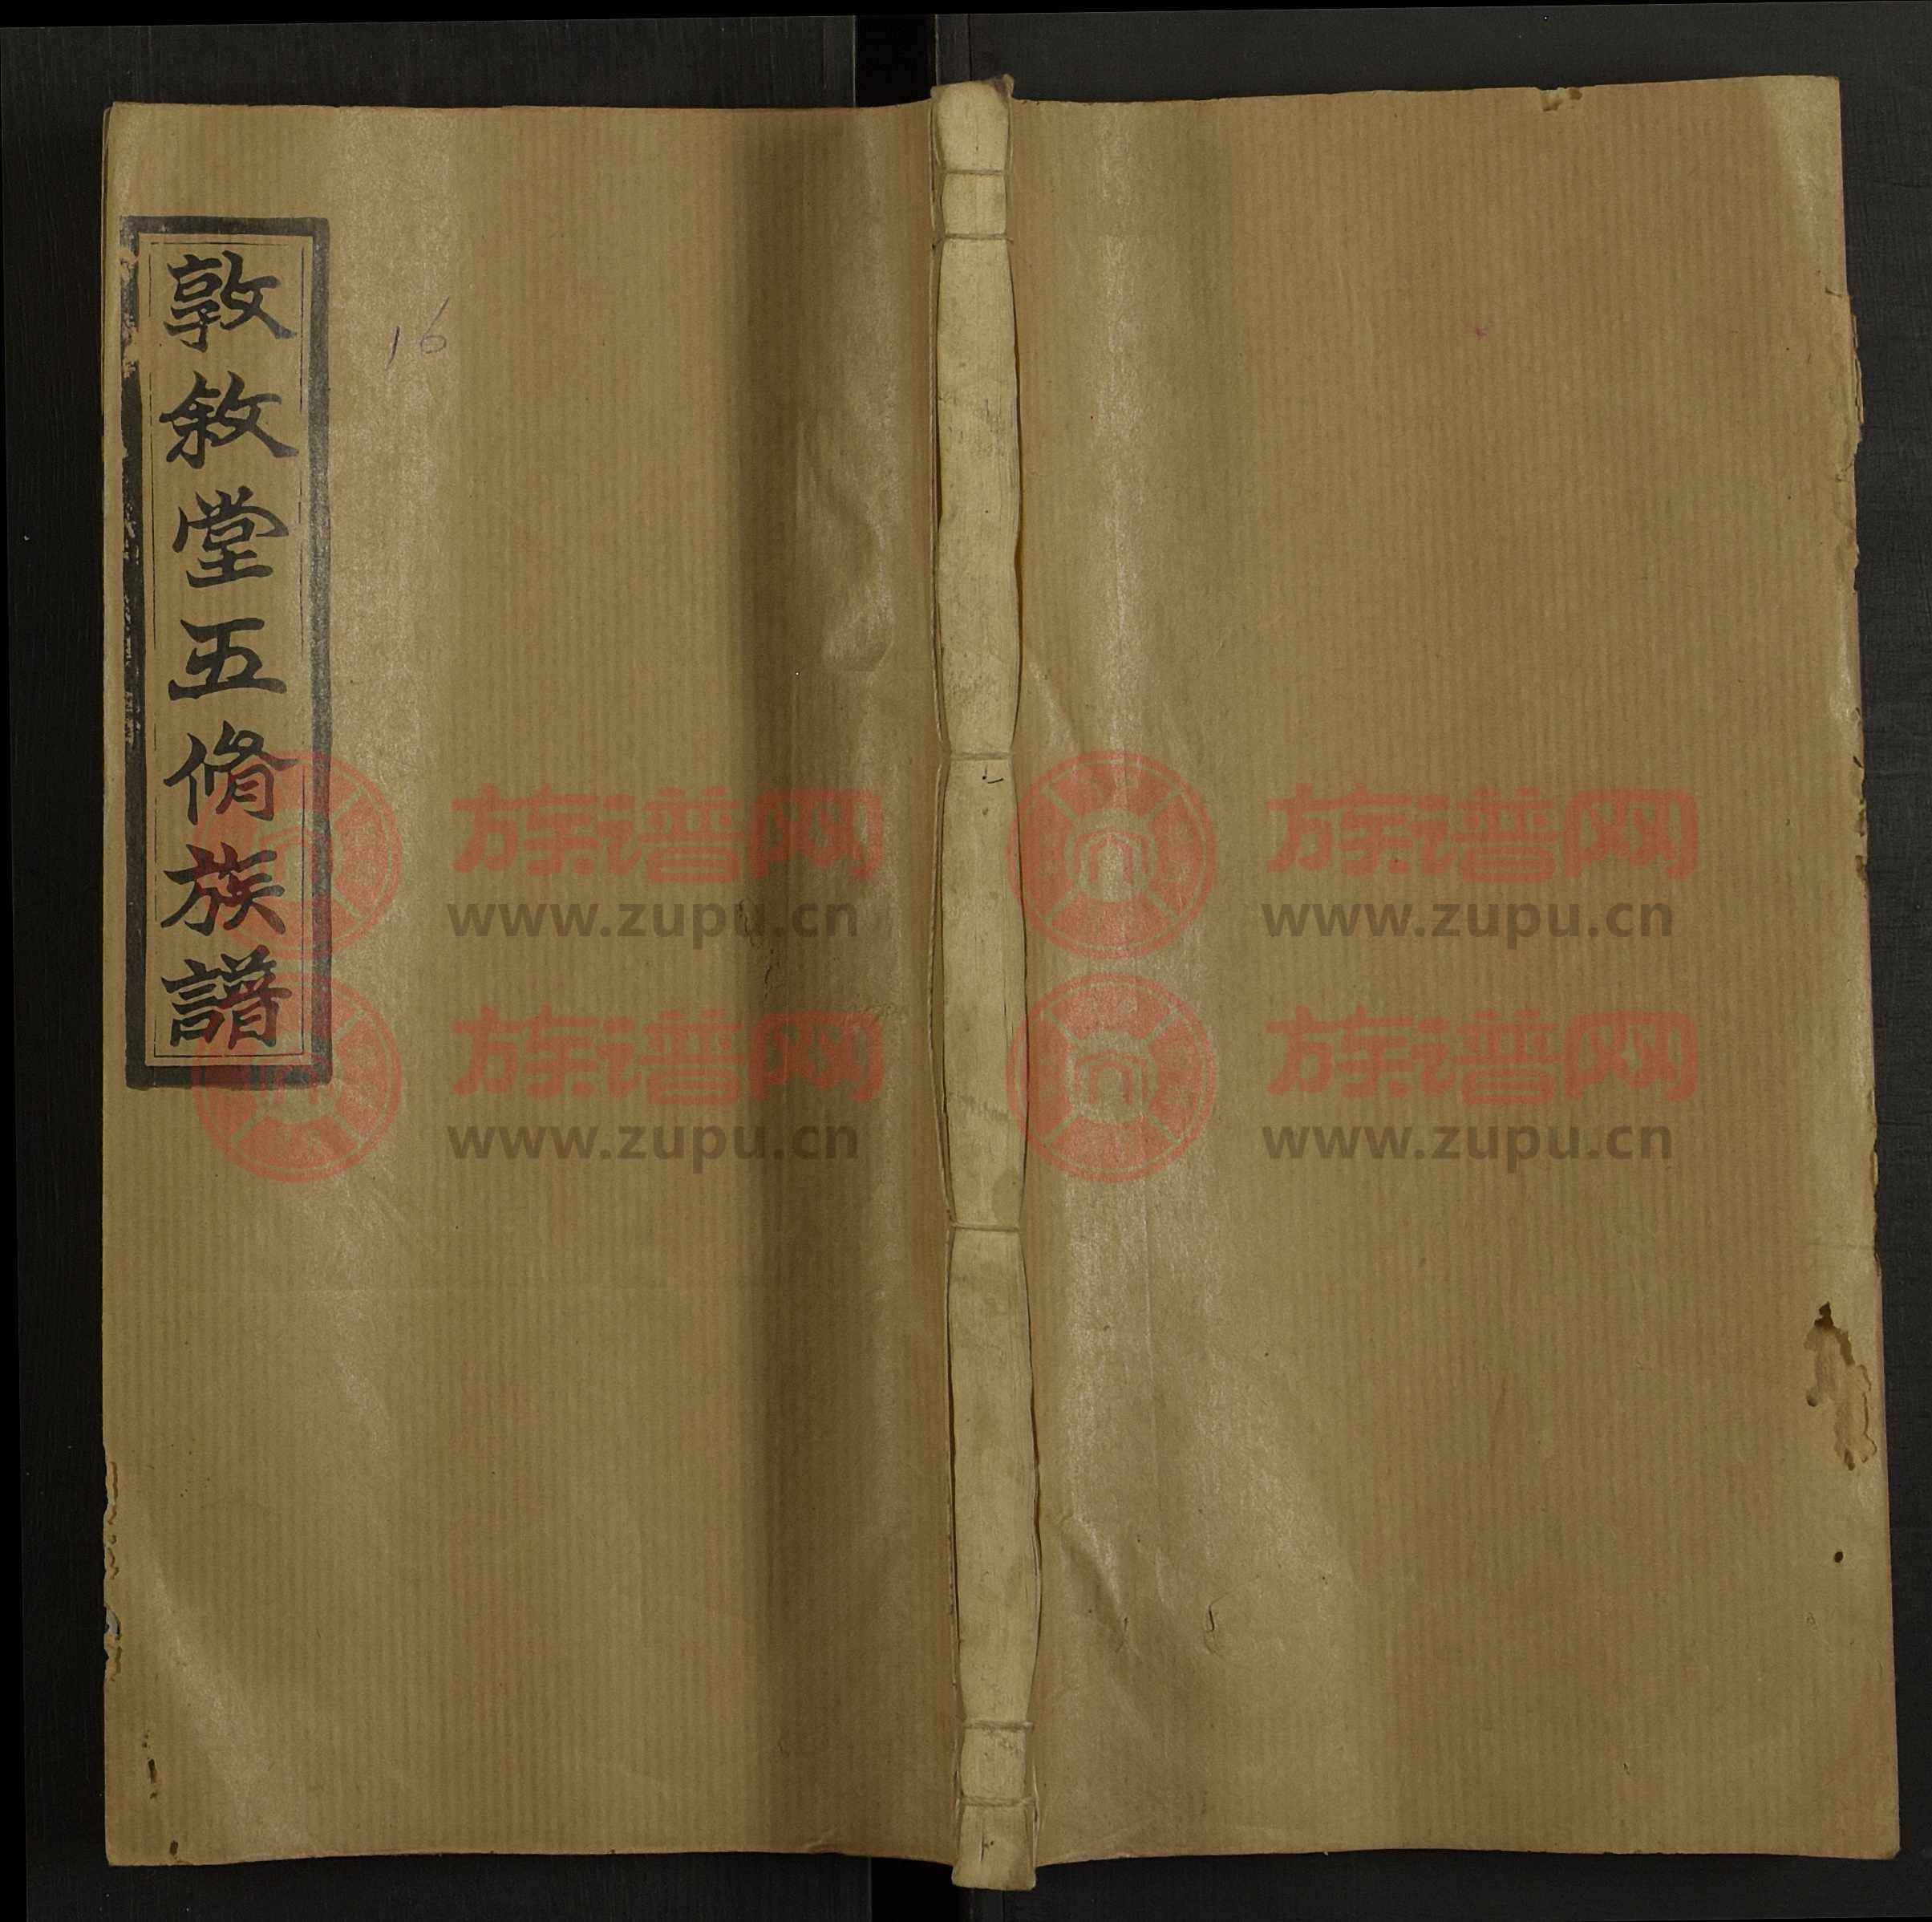 敦敘堂五脩族譜
16
族谱网 族谱网
www.zupu.cn www.zupu.cn
族谱网 族谱网
www.zupu.cn www.zupu.cn